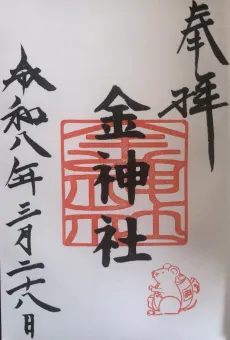 奉拝
金神社
令和八年三月二十八日